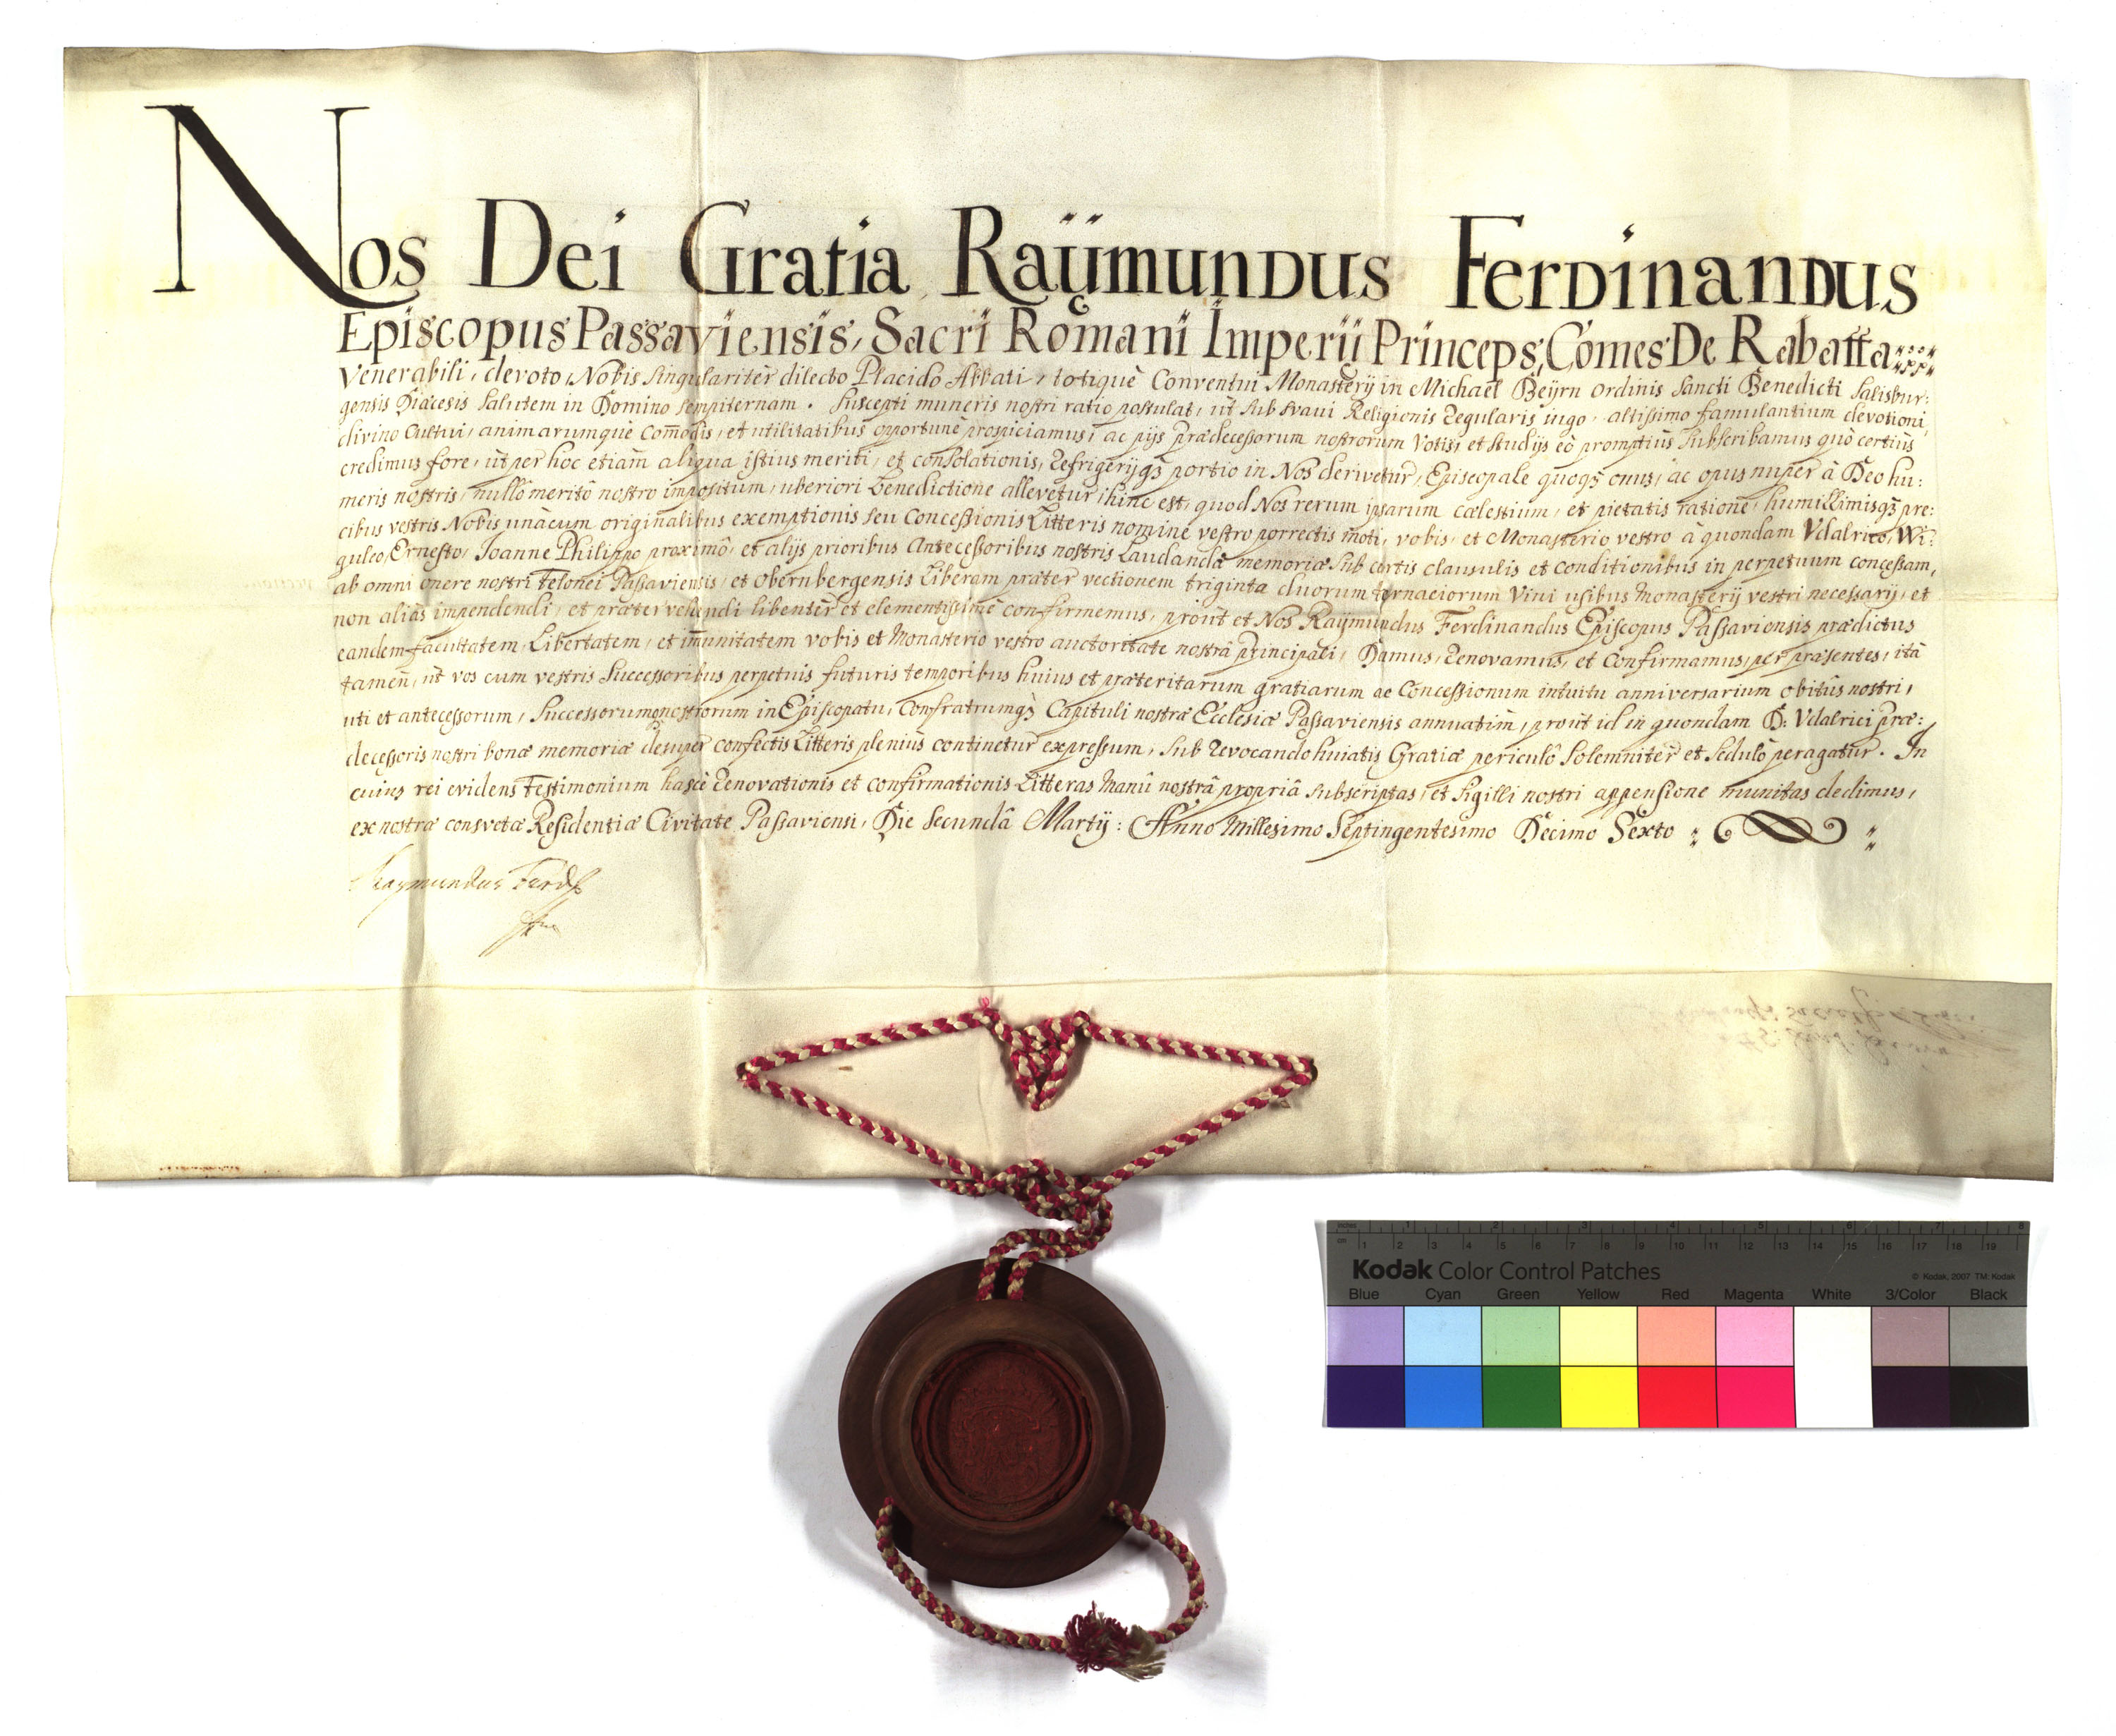 Nos Dei Gratia Raÿmundus Ferdinandus
Episcopus Passaviensis, Sacri Romani Imperÿ Princeps, Comes De Rabatta
Venerabili, devoto, Nobis singulariter dilecto Placido Abbati, totique Conventui Monasterÿ in Michaël Beÿrn ordinis Sancti Benedicti Salisbur:
gensis Diæcesis Salutem in Domino sempiternam. Suscepti muneris nostri ratio postulat, ut sub svavi Religionis regularis iugo, altissimo famulantium devotioni,
divino Cultui, animarumque Com̄odis, et utilitatibus opportunè prospiciamus, ac pÿs prædecessorum nostrorum Votis, et studÿs eò promptiùs subscribamus quò certiùs
credimus fore, ut per hoc etiam aliqua istius meriti, et consolationis, refrigerÿq₃ portio in Nos derivetur, Episcopale quoq₃ onus, ac opus nuper à Deo hu:
meris nostris, nullò meritò nostro impositum, uberiori benedictione allevetur, hinc est, quod Nos rerum ipsarum cælestium, et pietatis ratione, humillimisq₃ pre:
cibus vestris Nobis unàcum originalibus exemptionis seu Concessionis Litteris nomine vestro porrectis moti, vobis, et Monasterio vestro à quondam Vdalrico, Wi:
guleo, Ernesto, Joanne Philippo proximô, et alÿs prioribus Antecessoribus nostris Laudandæ memoriæ sub certis clausulis et conditionibus in perpetuum concessam,
ab omni onere nostri Telonei Passaviensis, et obernbergensis Liberam præter vectionem triginta duorum ternaciorum Vini usibus Monasterÿ vestri necessarÿ, et
non aliàs impendendi, et prætervehendi libentèr et clementissimè confirmemus, proùt et Nos Raÿmundus Ferdinandus Episcopus Passaviensis prædictus
eandem facultatem, Libertatem, et im̄unitatem vobis et Monasterio vestro auctoritate nostrâ principali, Damus, renovamus, et Confirmamus, per præsentes, ità
tamen, ùt vos cum vestris Successoribus perpetuis futuris temporibus huius et præteritarum gratiarum ac Concessionum intuitu anniversarium obitûs nostri,
uti et antecessorum, Successorumq₃ nostrorum in Episcopatu, Confratrumq₃ Capituli nostræ Ecclesiæ Passaviensis annuatim, proùt id in quondam D: Vdalrici præ:
decessoris nostri bonæ memoriæ desuper confectis Litteris pleniùs continetur expressum, sub revocandæ huiatis Gratiæ periculô solemnitèr et sedulò peragatur. In
cuius rei evidens Testimonium hasce renovationis et confirmationis Litteras Manû nostrâ propriâ subscriptas, et Sigilli nostri appensione munitas dedimus,
ex nostræ consvetæ Residentiæ Civitate Passaviensi, Die secundâ Martÿ: Anno Millesimo Septingentesimo Decimo Sexto
Raymundus Ferd
inches 1 2 3 4 5 6 7 8
cm 1 2 3 4 5 6 7 8 9 10 11 12 13 14 15 16 17 18 19
Kodak Color Control Patches © Kodak, 2007 TM: Kodak
Blue Cyan Green Yellow Red Magenta White 3/Color Black